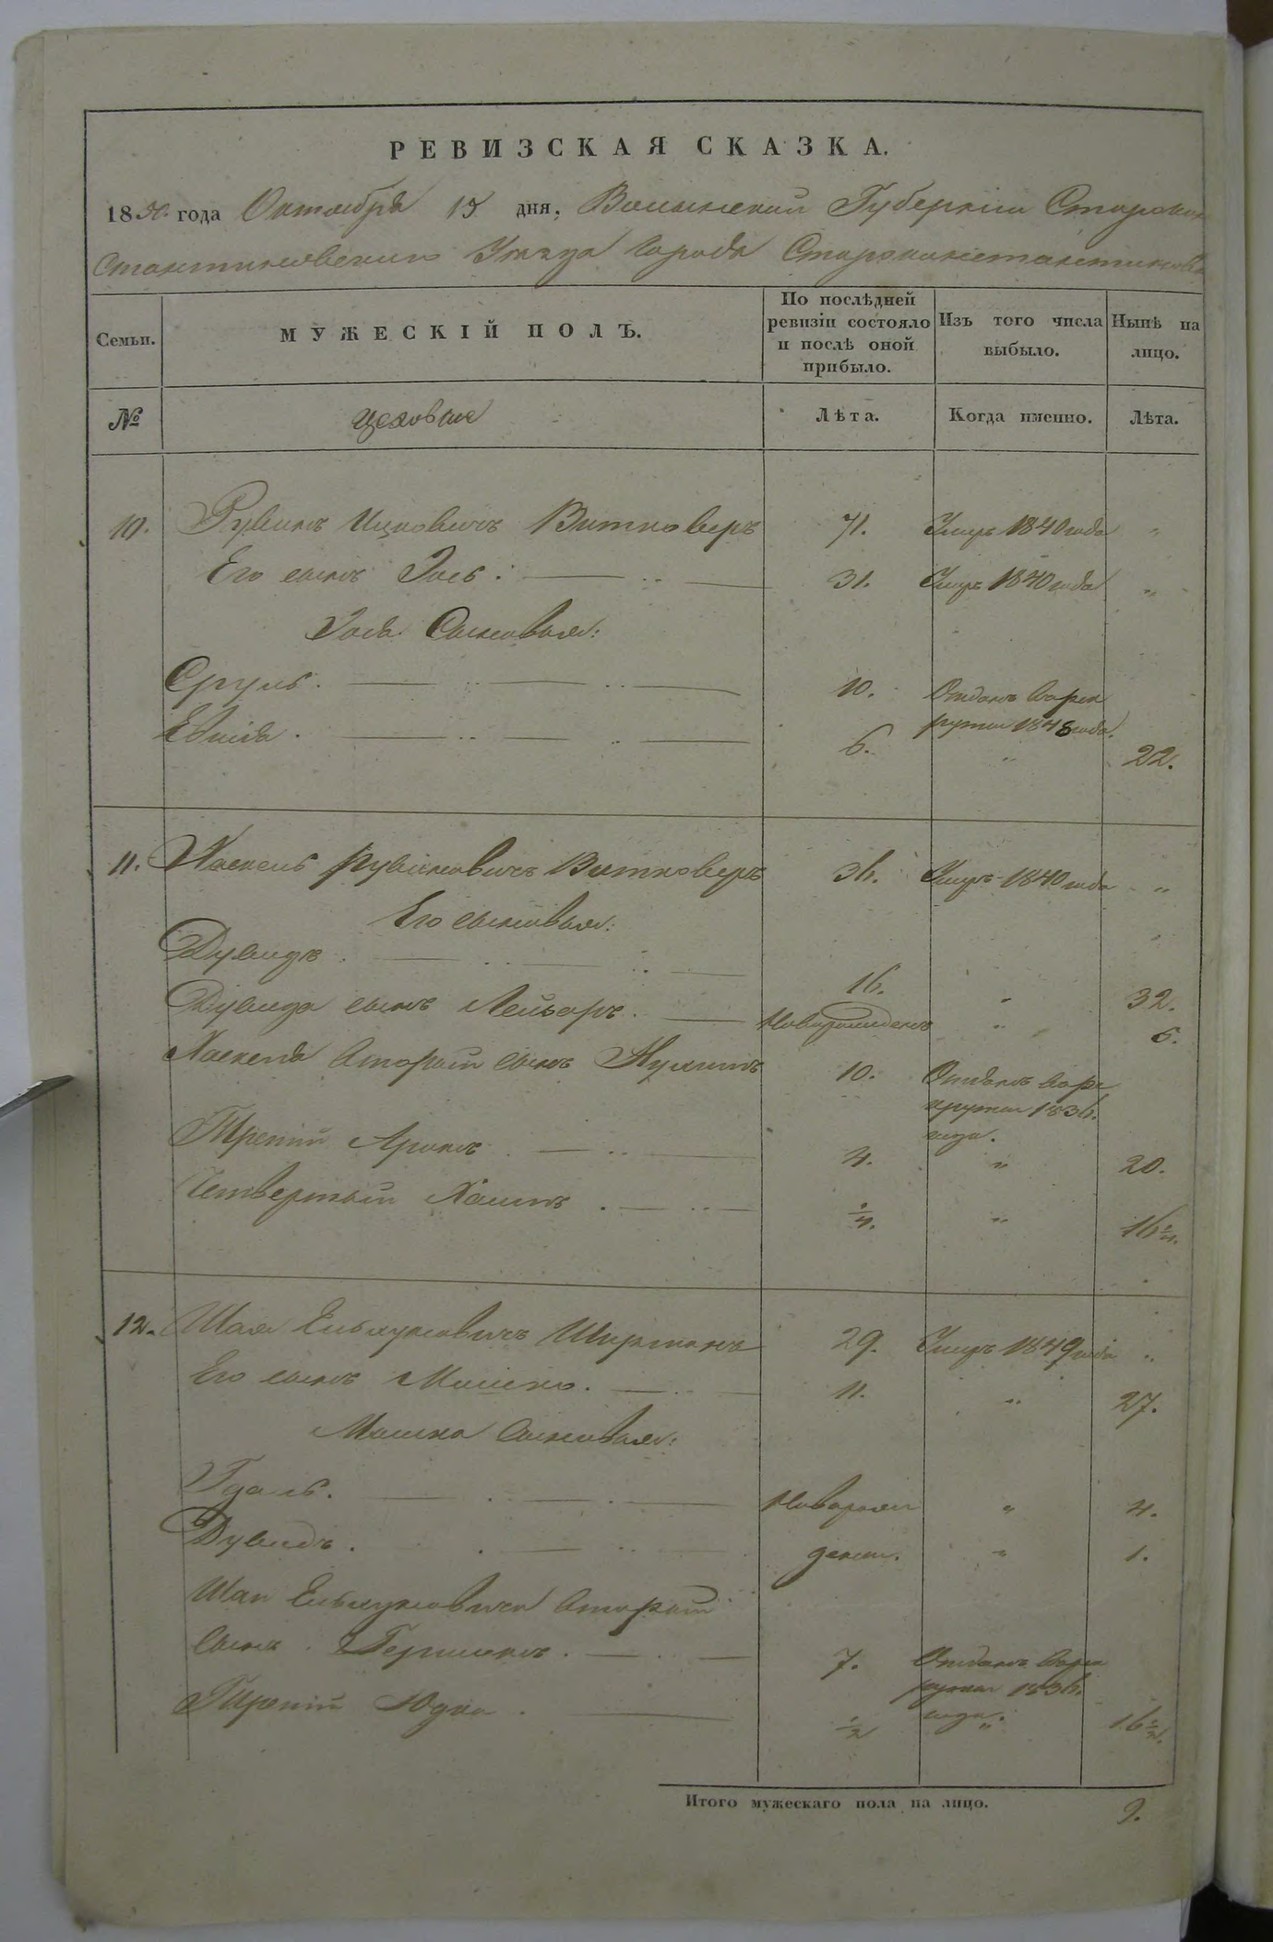 РЕВИЗСКАЯ СКАЗКА.
1850 года Октября 15 дня, Волынской Губерніи Старокон
стантиновскаго Уезда Города Староконстантинова
Семьи. МУЖЕСКІЙ ПОЛЪ. По послѣдней ревизіи состояло и послѣ оной прибыло. Изъ того числа выбыло. Нынѣ на лицо.
№ Цеховые Лѣта. Когда именно. Лѣта.
10. Рувинъ Ицковичъ Витковеръ 71. Умеръ 1840 года "
Его сынъ Іось: 31. Умеръ 1840 года "
Іося Сыновья:
Сруль. 10. Отданъ в рек
рути 1848 года.
6. " 22.
11. Хаскель Рувиновичъ Витковеръ 36. Умеръ 1840 года "
Его сыновья:
Дувидъ. 16. " 32.
Дувида сынъ Лейзоръ. Новорожденъ " 6.
Хаскеля второй сынъ Нухимъ 10. Отданъ в рек
рути 1836.
года.
Третій Аронъ 4. " 20.
Четвертый Хаимъ. 1/4. " 16 1/4.
12. Шая Ельхуновичъ Ширманъ 29. Умеръ 1849 года "
Его сынъ Мошко. 11. " 27.
Мошка Сыновья:
Гдаль. Новорож " 4.
Дувидъ. дены. " 1.
Шаи Ельхуновича второй
сынъ Гершонъ. 7. Отданъ в рек
рути 1836.
года.
Третій Юдка. 1/2 " 16 1/2.
Итого мужескаго пола на лицо. 9.